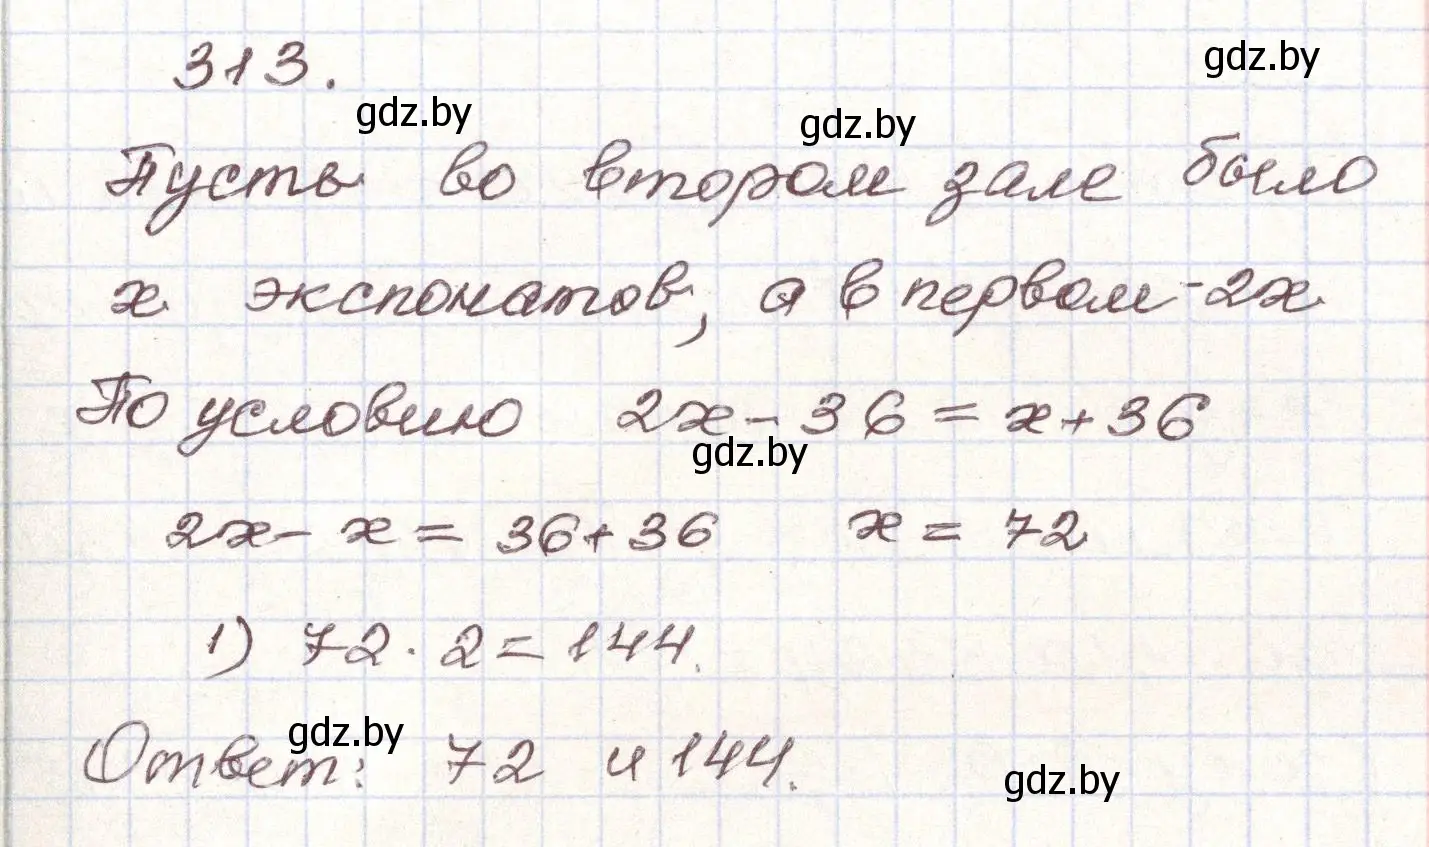 313.
gdz.by
gdz.by
gdz.by
Пусть во втором зале было
x экспонатов, а в первом - 2x
По условию 2x - 36 = x + 36
gdz.by
2x - x = 36 + 36 x = 72
1) 72 · 2 = 144.
Ответ: 72 и 144.
gdz.by
gdz.by